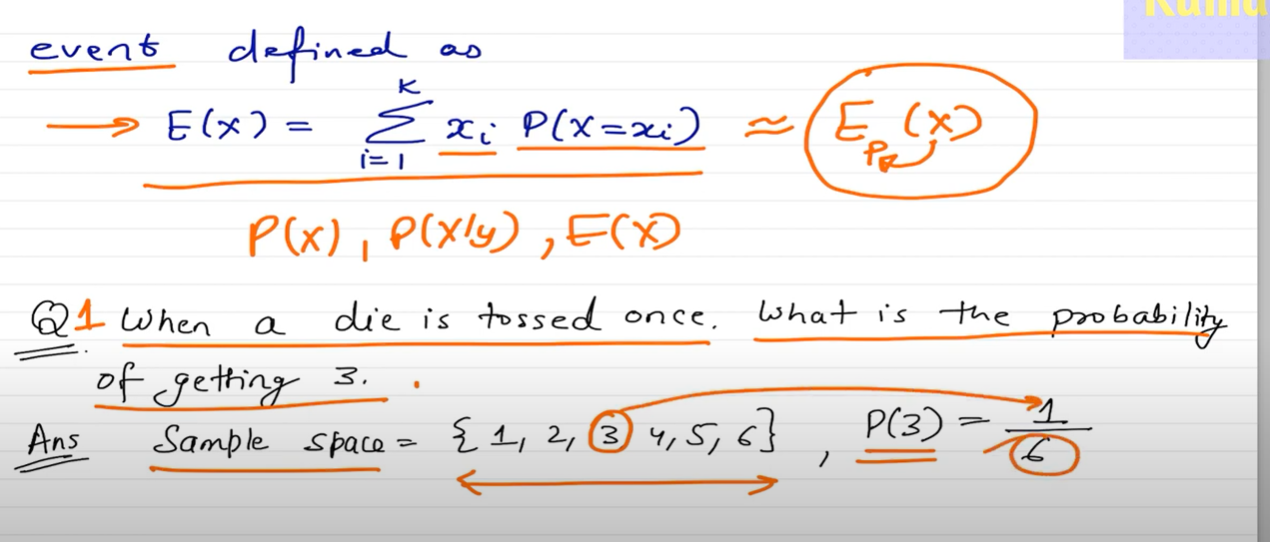 event defined as
→ E(x) = K Σ i=1 xi P(X=xi) ≈ E P (x)
P(x), P(x/y), E(x)
Q1. When a die is tossed once. What is the probability
of getting 3.
Ans Sample space = {1, 2, 3 4, 5, 6}, P(3) = 1/6